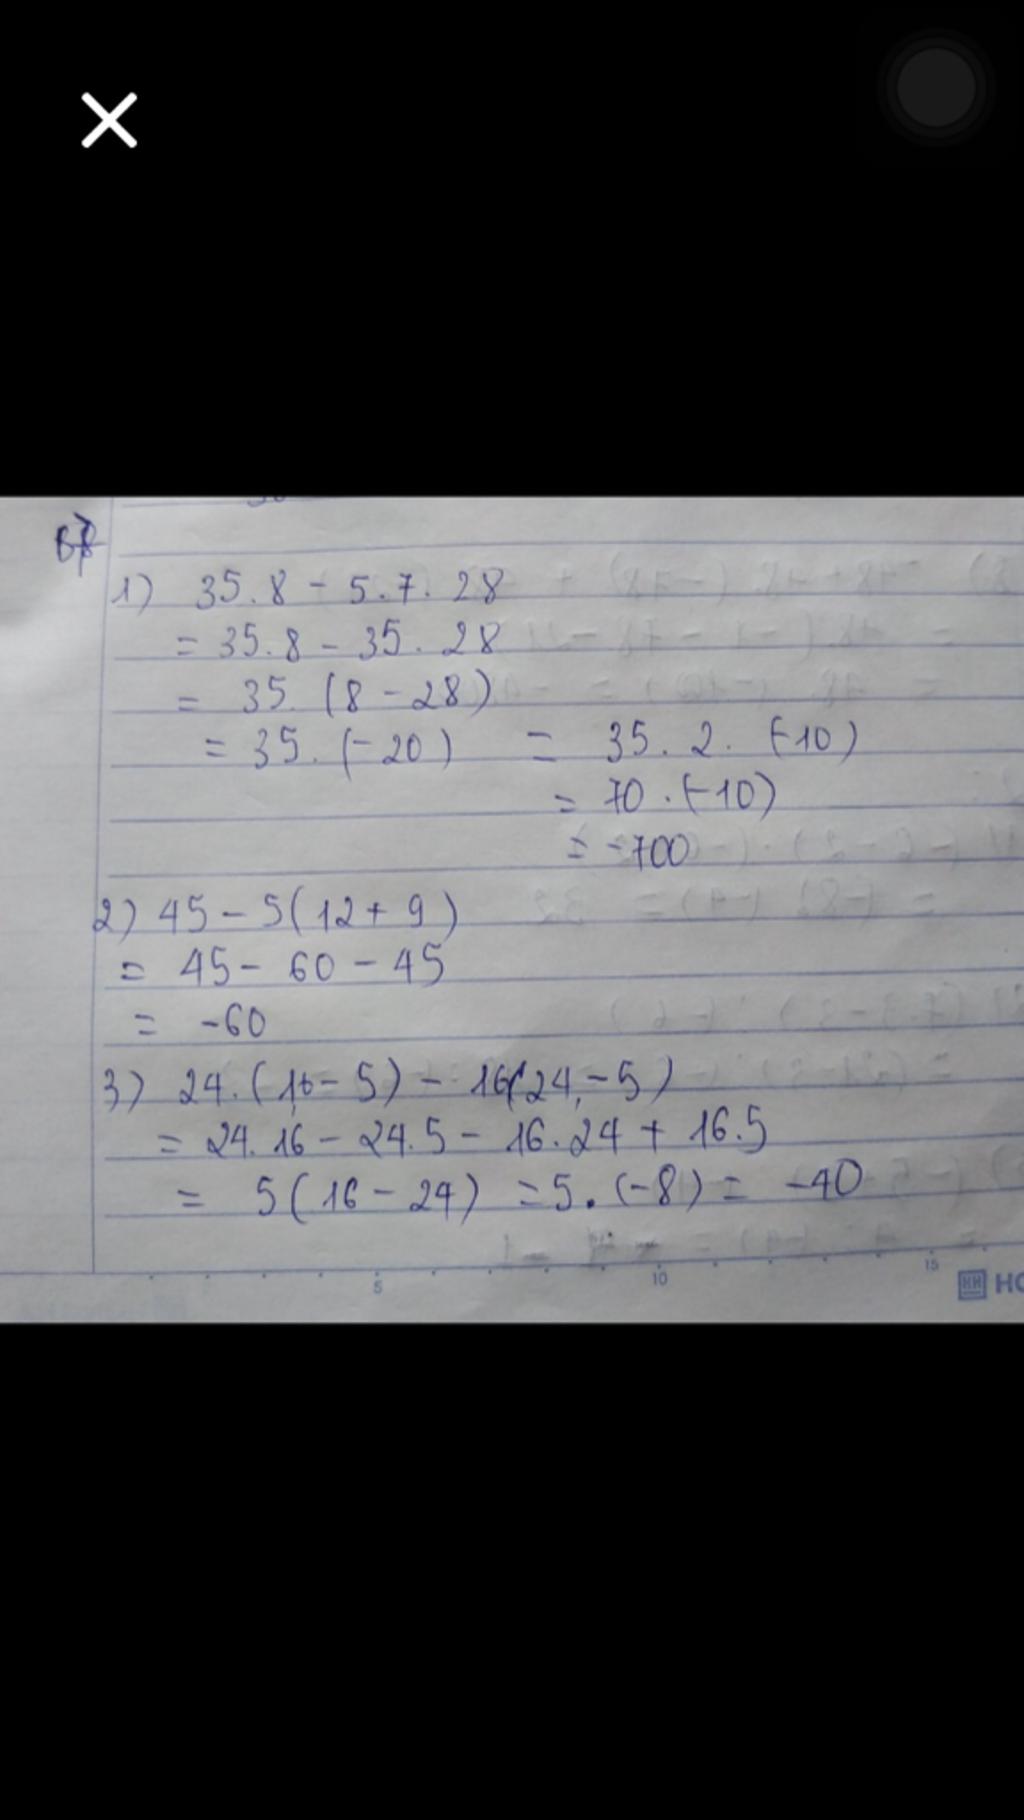 1) 35.8 - 5.7.28
= 35.8 - 35.28
= 35.(8 - 28)
= 35.(-20) = 35.2.(-10)
= 70.(-10)
= -700
2) 45 - 5(12 + 9)
= 45 - 60 - 45
= -60
3) 24.(16 - 5) - 16(24 - 5)
= 24.16 - 24.5 - 16.24 + 16.5
= 5(16 - 24) = 5.(-8) = -40
5 10 15
HH HO